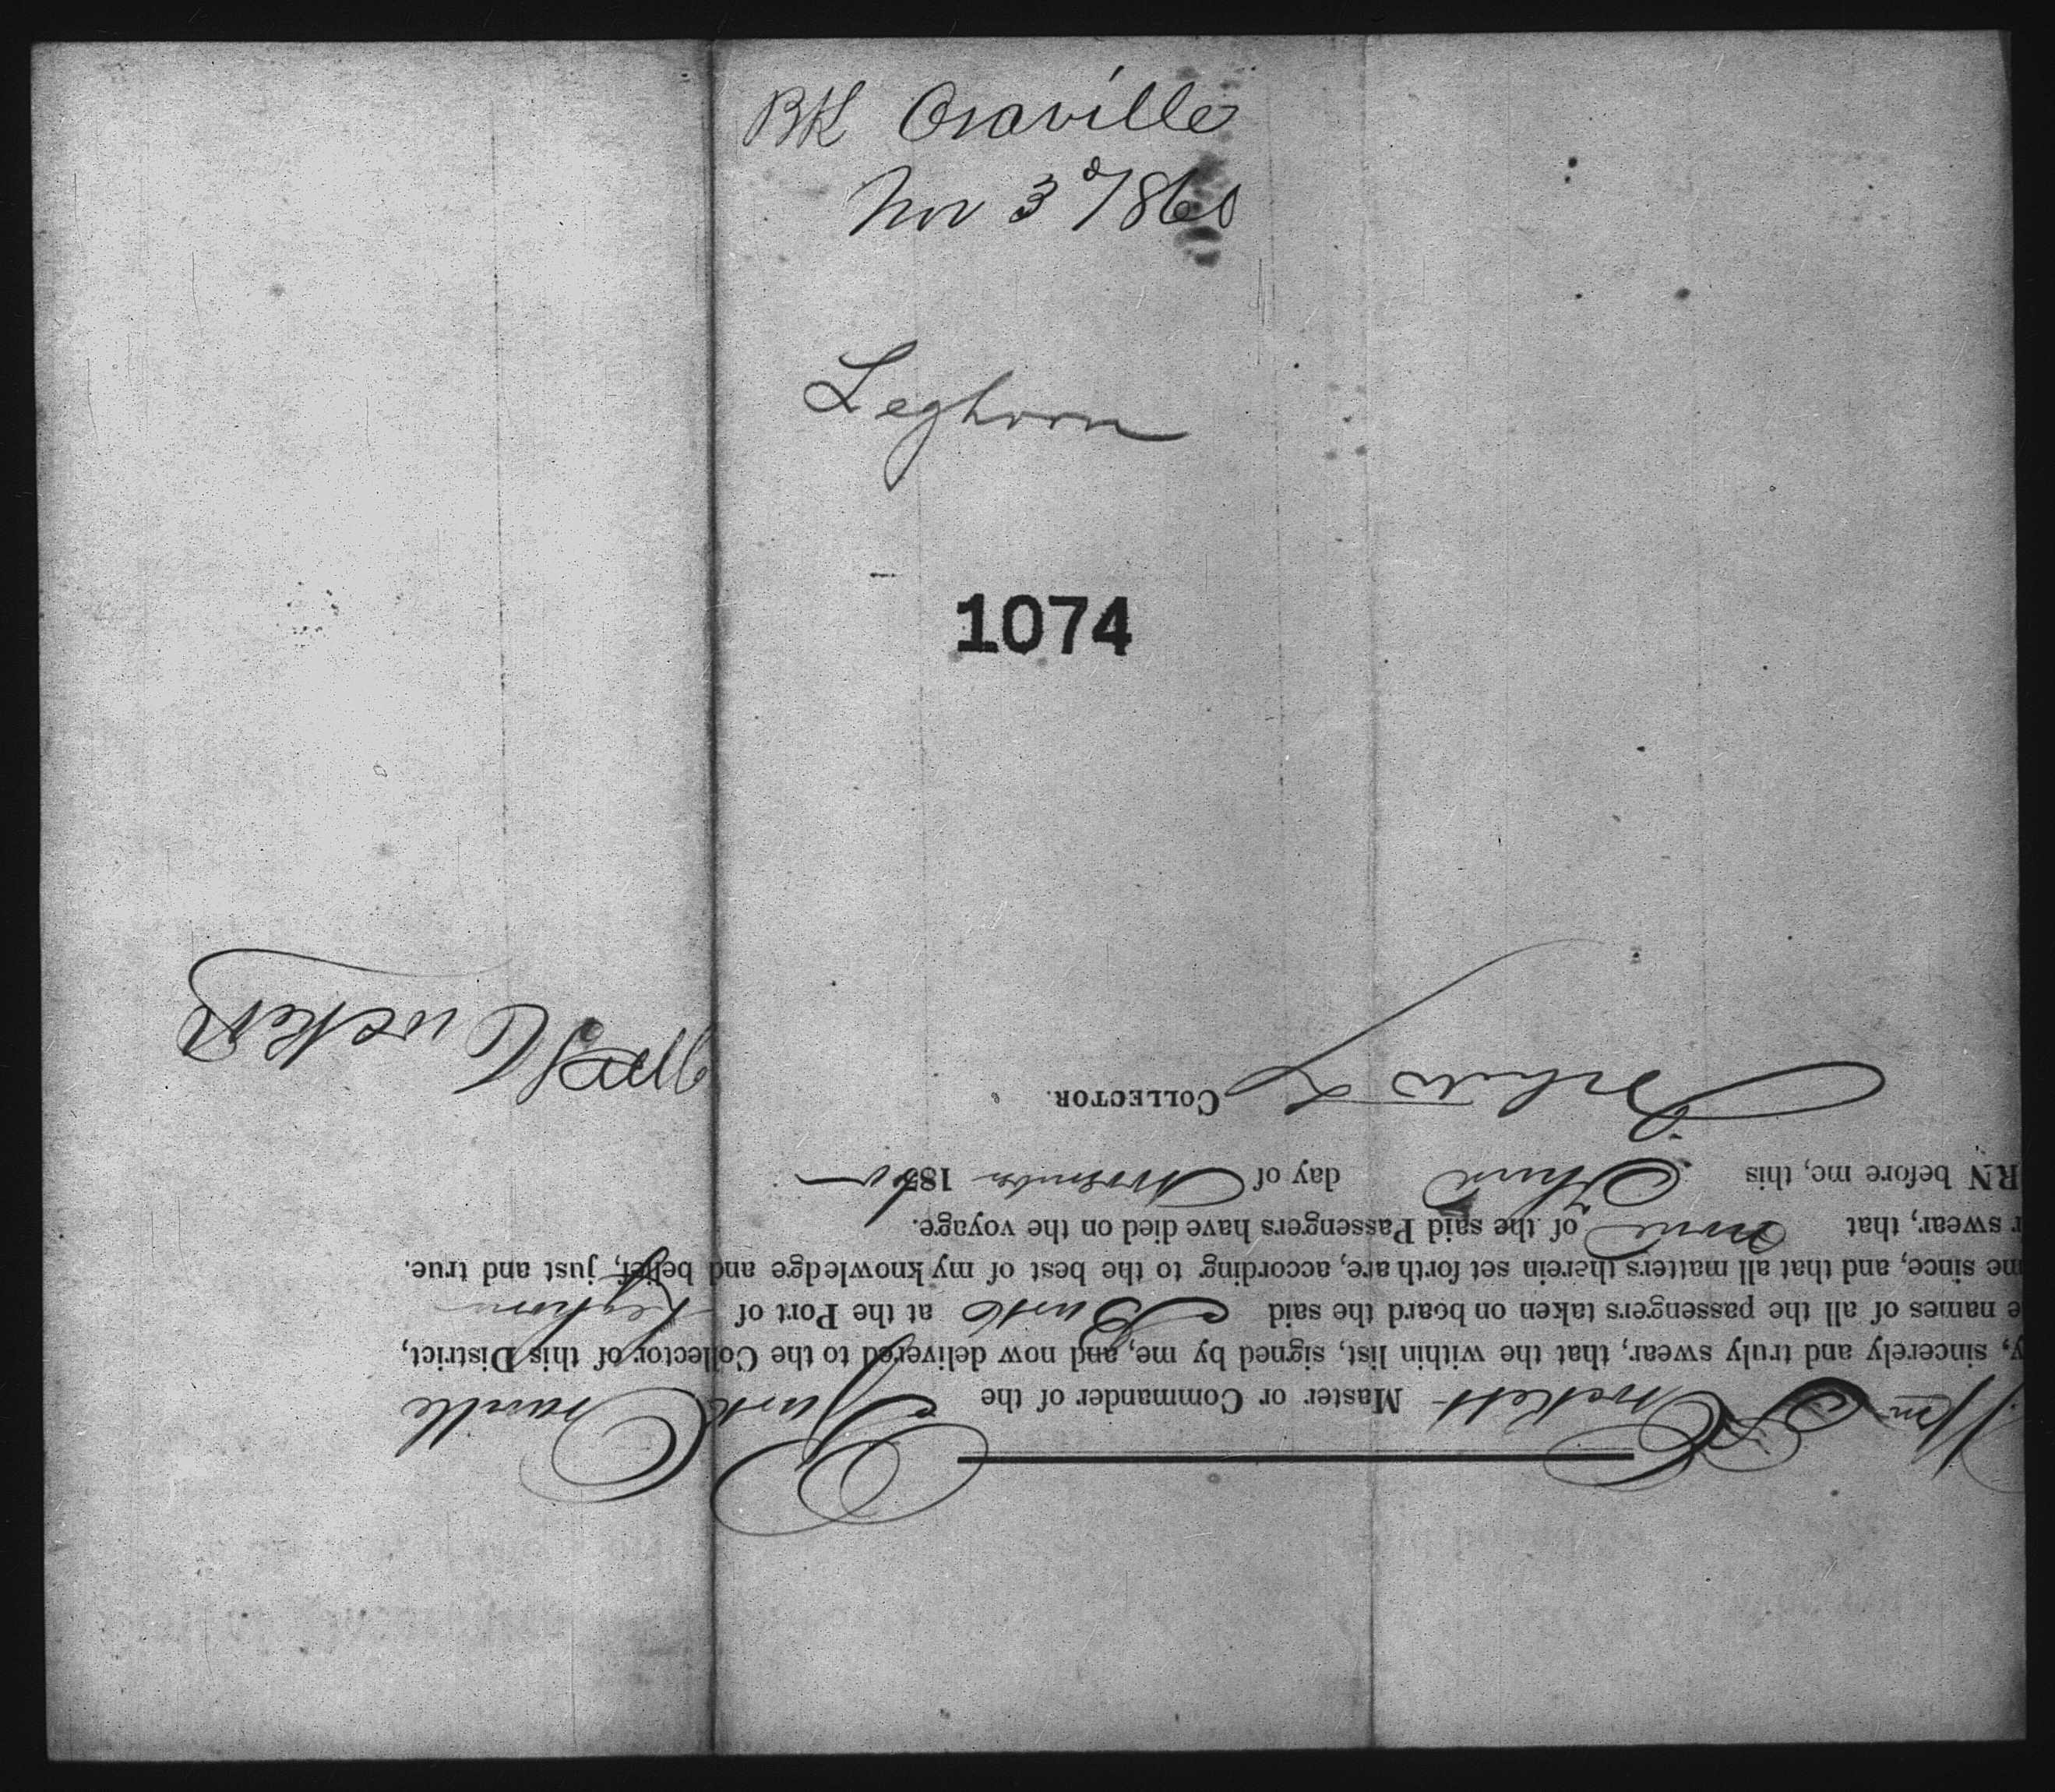 BK Oraville
Nov 3d 1860
Leghorn
1074
Wm S Crockett Master or Commander of the Bark Oraville
y, sincerely and truly swear, that the within list, signed by me, and now delivered to the Collector of this District,
e names of all the passengers taken on board the said Bark at the Port of Leghorn
me since, and that all matters therein set forth are, according to the best of my knowledge and belief, just and true.
r swear, that none of the said Passengers have died on the voyage.
RN before me, this Third day of November 1860
COLLECTOR.
Crockett